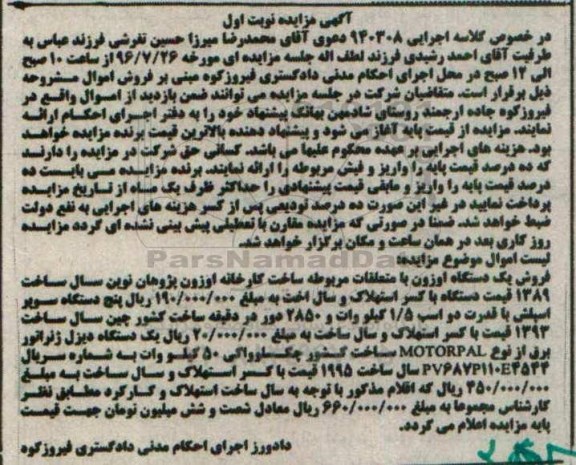 آگهی مزایده نوبت اول
در خصوص کلاسه اجرایی ۹۴۰۳۰۸ دعوی آقای محمدرضا میرزا حسین تفرشی فرزند عباس به
طرفیت آقای احمد رشیدی فرزند لطف اله جلسه مزایده ای مورخه ۹۶/۷/۲۶ از ساعت ۱۰ صبح
الی ۱۲ صبح در محل اجرای احکام مدنی دادگستری فیروزکوه مبنی بر فروش اموال مشروحه
ذیل برقرار است. متقاضیان شرکت در جلسه مزایده می توانند ضمن بازدید از اموال واقع در
فیروزکوه جاده ارجمند روستای شادمهن بهانک پیشنهاد خود را به دفتر اجرای احکام ارائه
نمایند. مزایده از قیمت پایه آغاز می شود و پیشنهاد دهنده بالاترین قیمت برنده مزایده خواهد
بود. هزینه های اجرایی بر عهده محکوم علیها می باشد. کسانی حق شرکت در مزایده را دارند
که ده درصد قیمت پایه را واریز و فیش مربوطه را ارائه نمایند. برنده مزایده می بایست ده
درصد قیمت پایه را واریز و مابقی قیمت پیشنهادی را حداکثر ظرف یک ماه از تاریخ مزایده
پرداخت نمایید در غیر این صورت ده درصد تودیعی پس از کسر هزینه های اجرایی به نفع دولت
ضبط خواهد شد. ضمنا در صورتی که مزایده مقارن با تعطیلی پیش بینی نشده ای گردد مزایده
روز کاری بعد در همان ساعت و مکان برگزار خواهد شد.
لیست اموال موضوع مزایده:
فروش یک دستگاه اوزون با متعلقات مربوطه ساخت کارخانه اوزون پژوهان نوین سال ساخت
۱۳۸۹ قیمت دستگاه با کسر استهلاک و سال اخت به مبلغ ۱۹۰/۰۰۰/۰۰۰ ریال پنج دستگاه سوپر
اسپلش با قدرت دو اسب ۱/۵ کیلو وات و ۲۸۵۰ دور در دقیقه ساخت کشور چین سال ساخت
۱۳۹۳ قیمت با کسر استهلاک و سال ساخت به مبلغ ۲۰/۰۰۰/۰۰۰ ریال یک دستگاه دیزل ژنراتور
برق از نوع MOTORPAL ساخت کشور چکسلوواکی ۵۰ کیلو وات به شماره سریال
PV۶۸۷P۱۱۰E۴۵۴۴ سال ساخت ۱۹۹۵ قیمت با کسر استهلاک و سال ساخت به مبلغ
۴۵۰/۰۰۰/۰۰۰ ریال که اقلام مذکور با توجه به سال ساخت استهلاک و کارکرد مطابق نظر
کارشناس مجموعا به مبلغ ۶۶۰/۰۰۰/۰۰۰ ریال معادل شصت و شش میلیون تومان جهت قیمت
پایه مزایده اعلام می گردد.
دادورز اجرای احکام مدنی دادگستری فیروزکوه
ParsNamadData